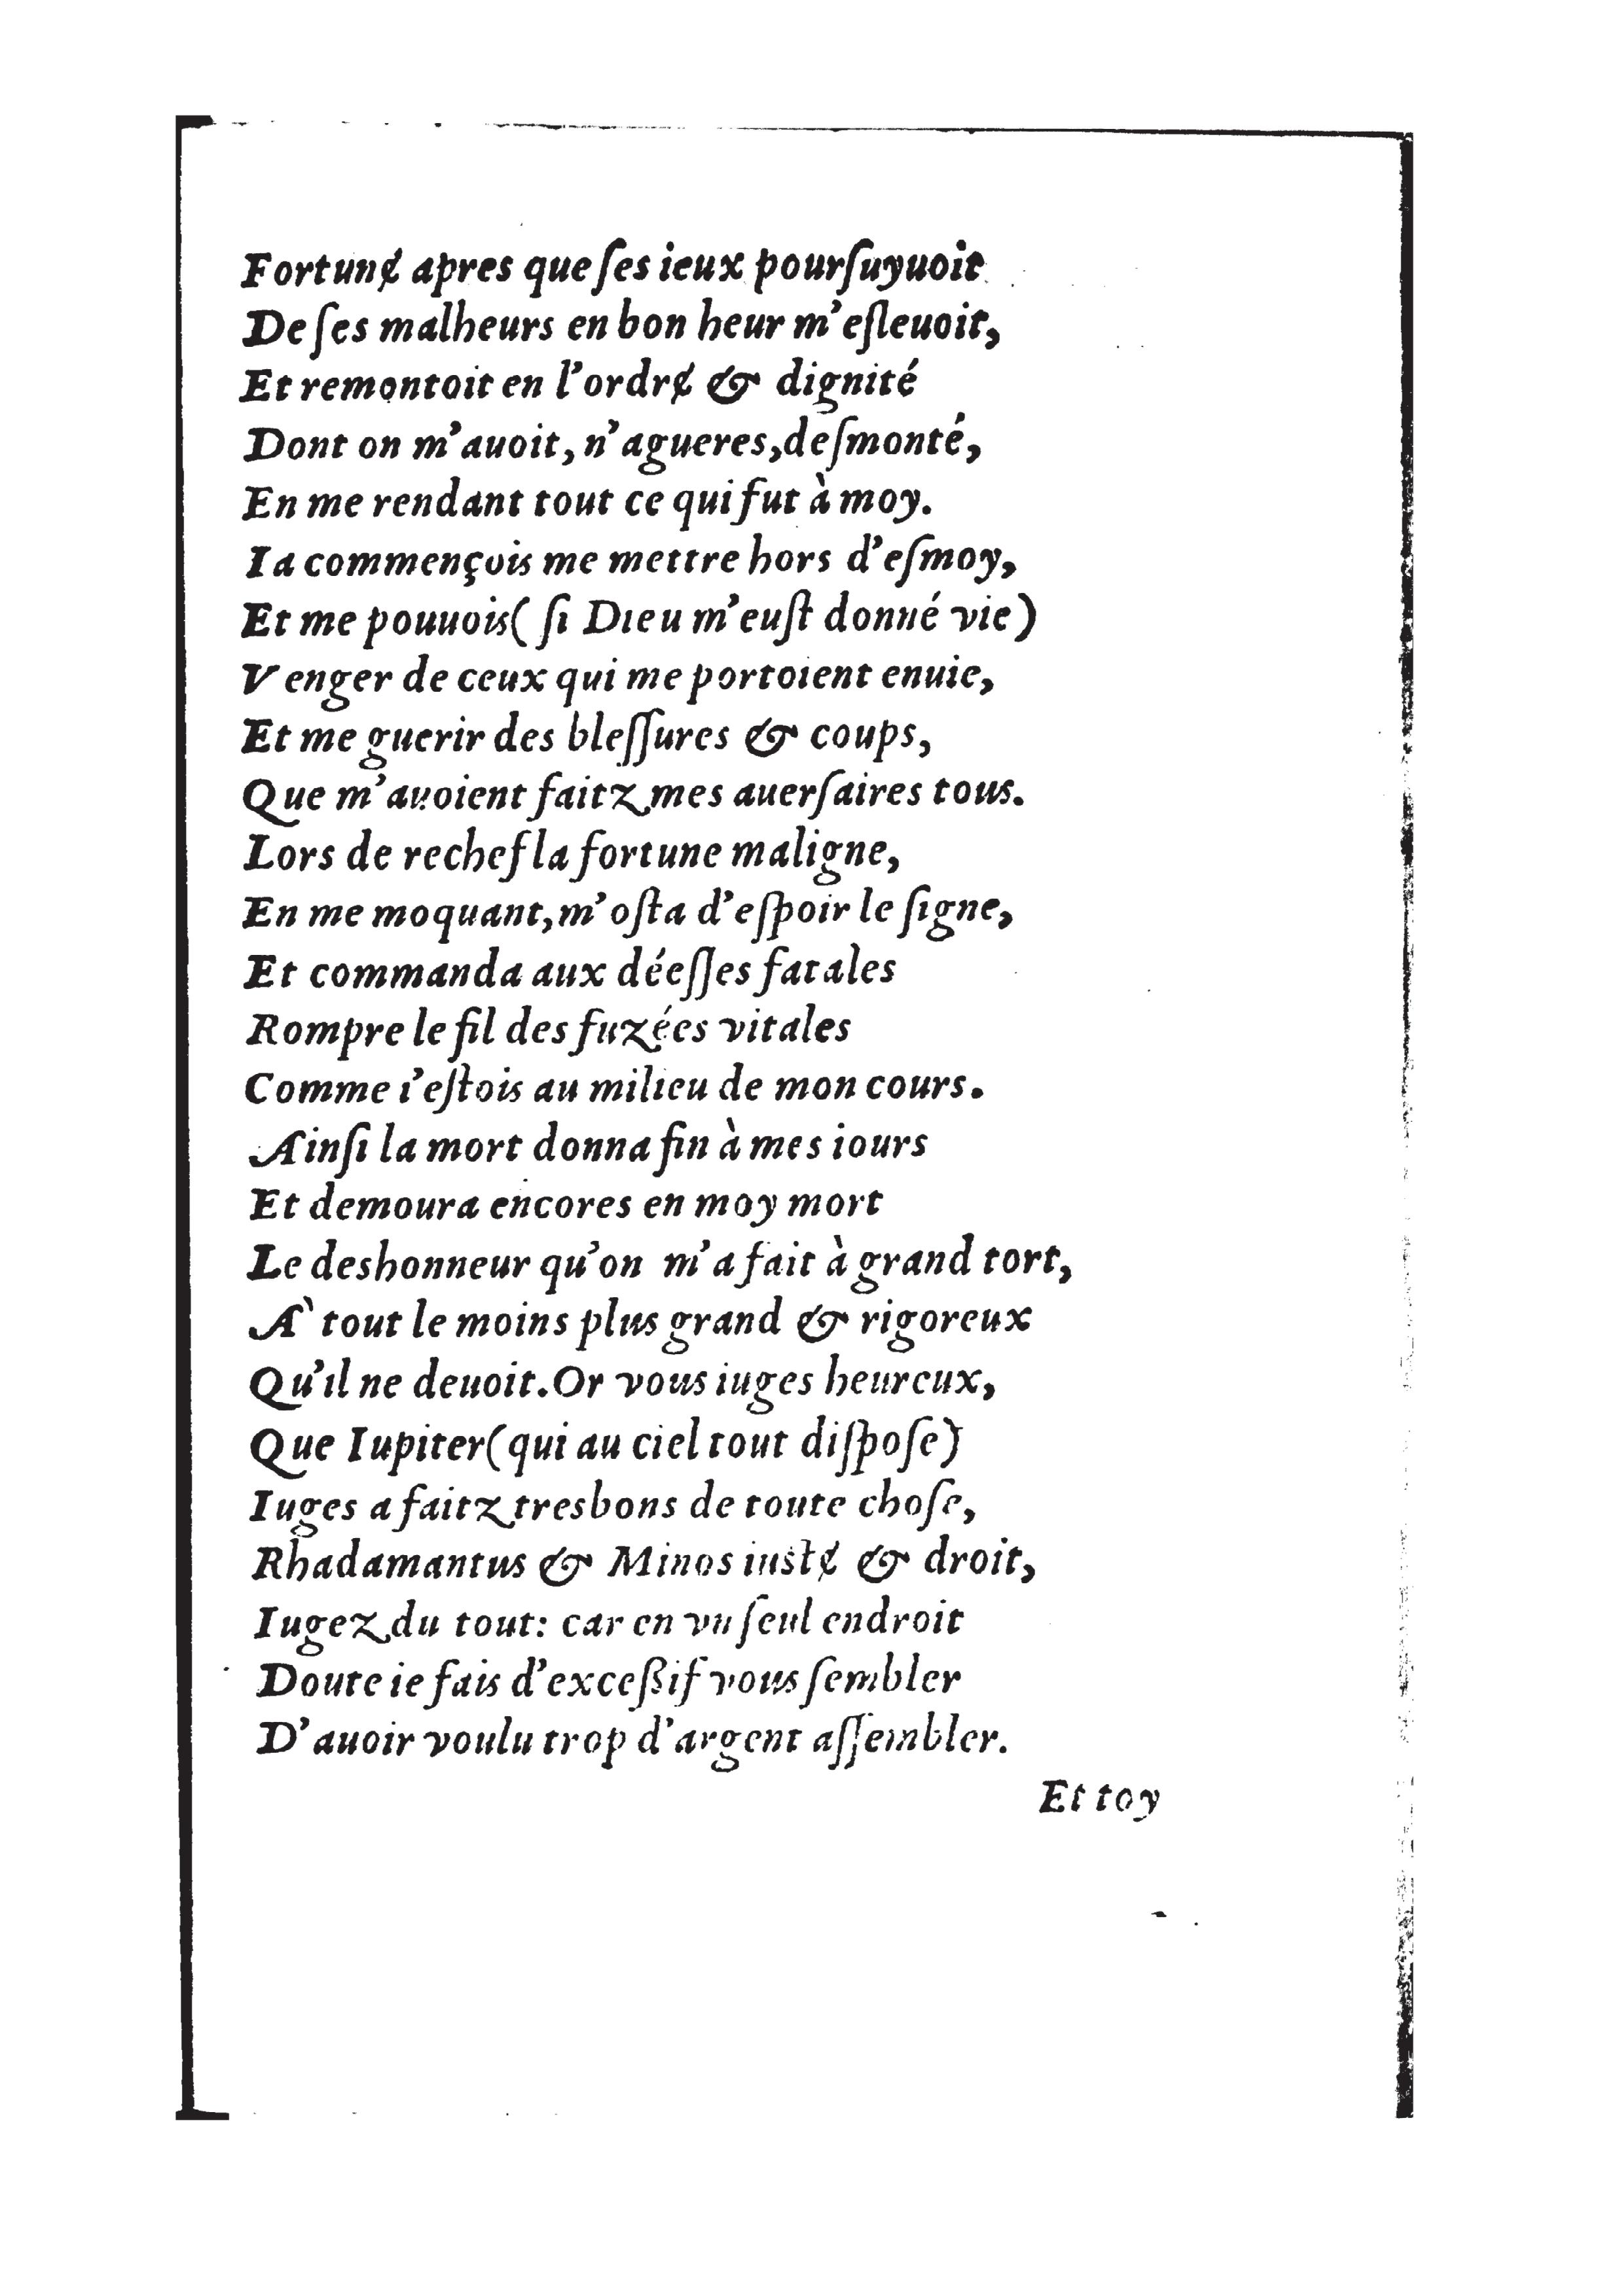 Fortunɇ apres que ſes ieux pourſuyuoit
De ſes malheurs en bon heur m'eſleuoit,
Et remontoit en l'ordrɇ & dignité
Dont on m'auoit, n'agueres, deſmonté,
En me rendant tout ce qui fut à moy.
Ia commençois me mettre hors d'eſmoy,
Et me pouuois (ſi Dieu m'euſt donné vie)
Venger de ceux qui me portoient enuie,
Et me guerir des bleſſures & coups,
Que m'avoient faitz mes auerſaires tous.
Lors de rechef la fortune maligne,
En me moquant, m'oſta d'eſpoir le ſigne,
Et commanda aux déeſſes fatales
Rompre le fil des fuzées vitales
Comme i'eſtois au milieu de mon cours.
Ainſi la mort donna fin à mes iours
Et demoura encores en moy mort
Le deshonneur qu'on m'a fait à grand tort,
À tout le moins plus grand & rigoreux
Qu'il ne deuoit. Or vous iuges heureux,
Que Iupiter (qui au ciel tout diſpoſe)
Iuges a faitz tresbons de toute choſe,
Rhadamantus & Minos iuſtɇ & droit,
Iugez du tout: car en vn ſeul endroit
Doute ie fais d'exceßif vous ſembler
D'auoir voulu trop d'argent aſſembler.
Et toy